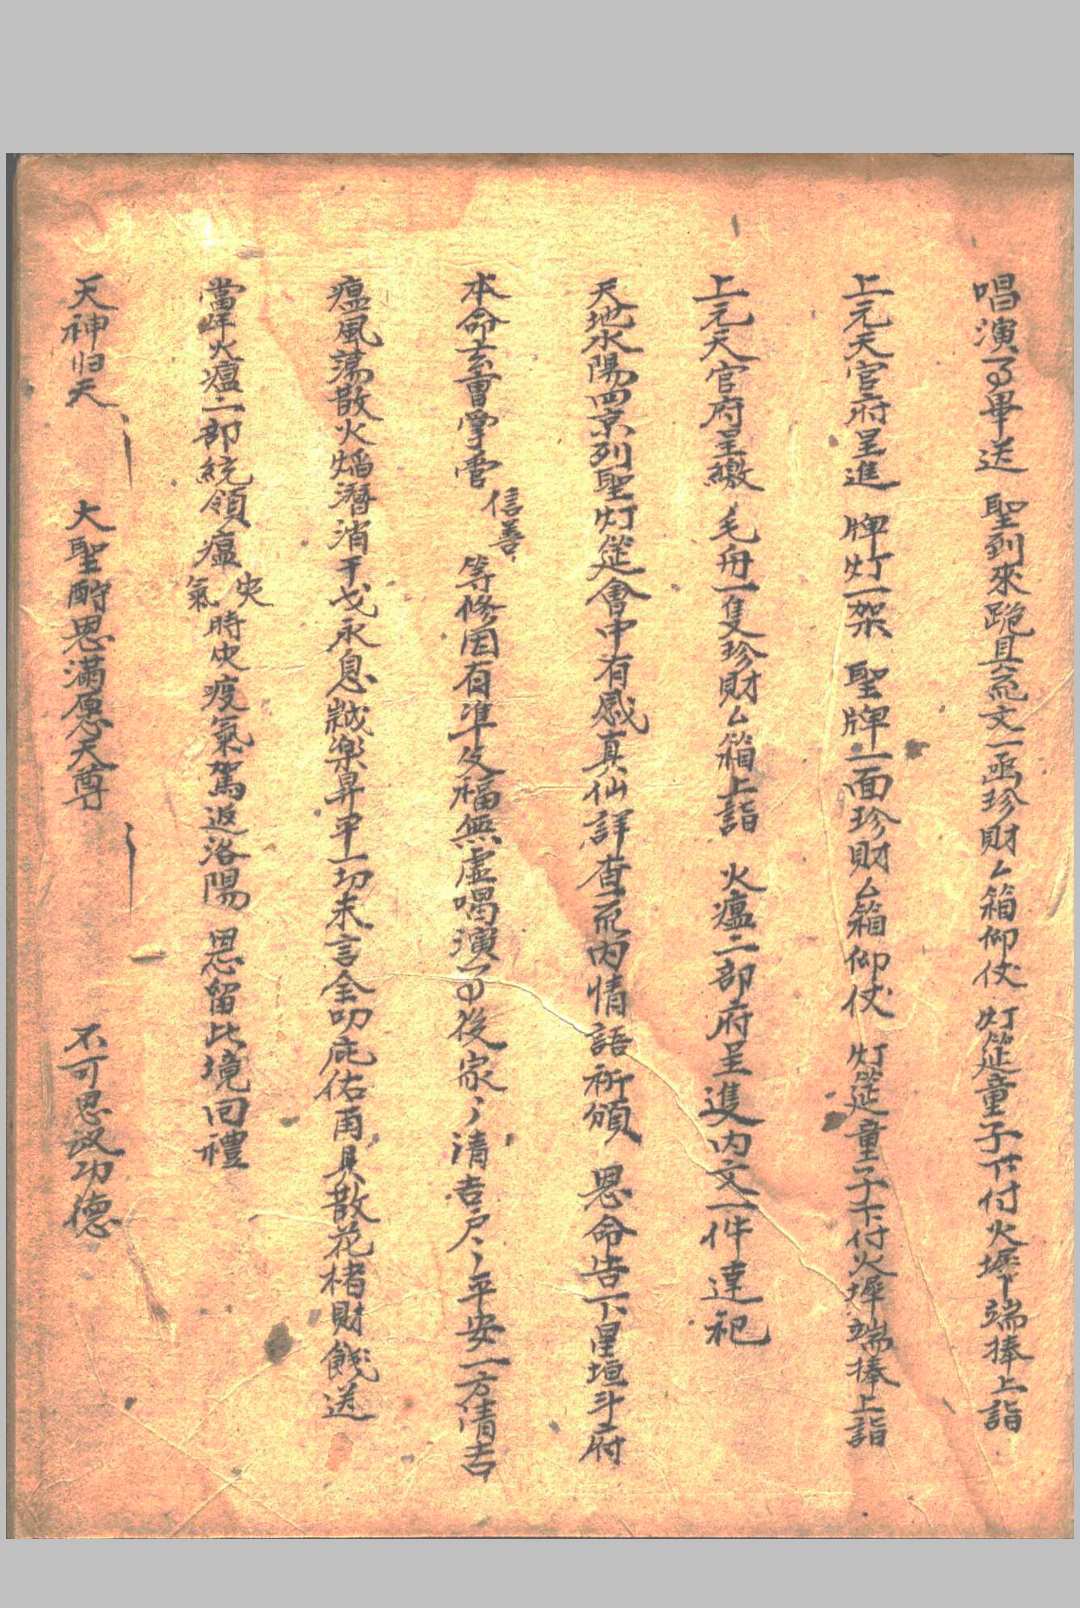 唱演了畢送 聖到來跪具疏文一函珍財厶箱仰仗 灯筵童子下付火墀端捧上詣
上元天官府呈進 牌灯一架 聖牌一面珍財厶箱仰仗 灯筵童子下付火墀端捧上詣
上元天官府呈繳 毛舟一隻珍財厶箱上詣 火瘟二部府呈進內文一件達祀
天地水陽四京列聖灯筵會中有感真仙詳查疏內情語祈頒 恩命告下星垣斗府
本命玄曹掌雷信善等修因有準攵福無虛唱演了後家〻清吉戶〻平安一方清吉
瘟風蕩散火熖潛消干戈永息越樂昇平一切未言全叨庇佑甫具散花楮財餞送
當年火瘟二部統領瘟灾氣時灾疫氣駕返洛陽 恩留此境回禮
天神归天 大聖酧恩滿愿天尊 不可思议功德